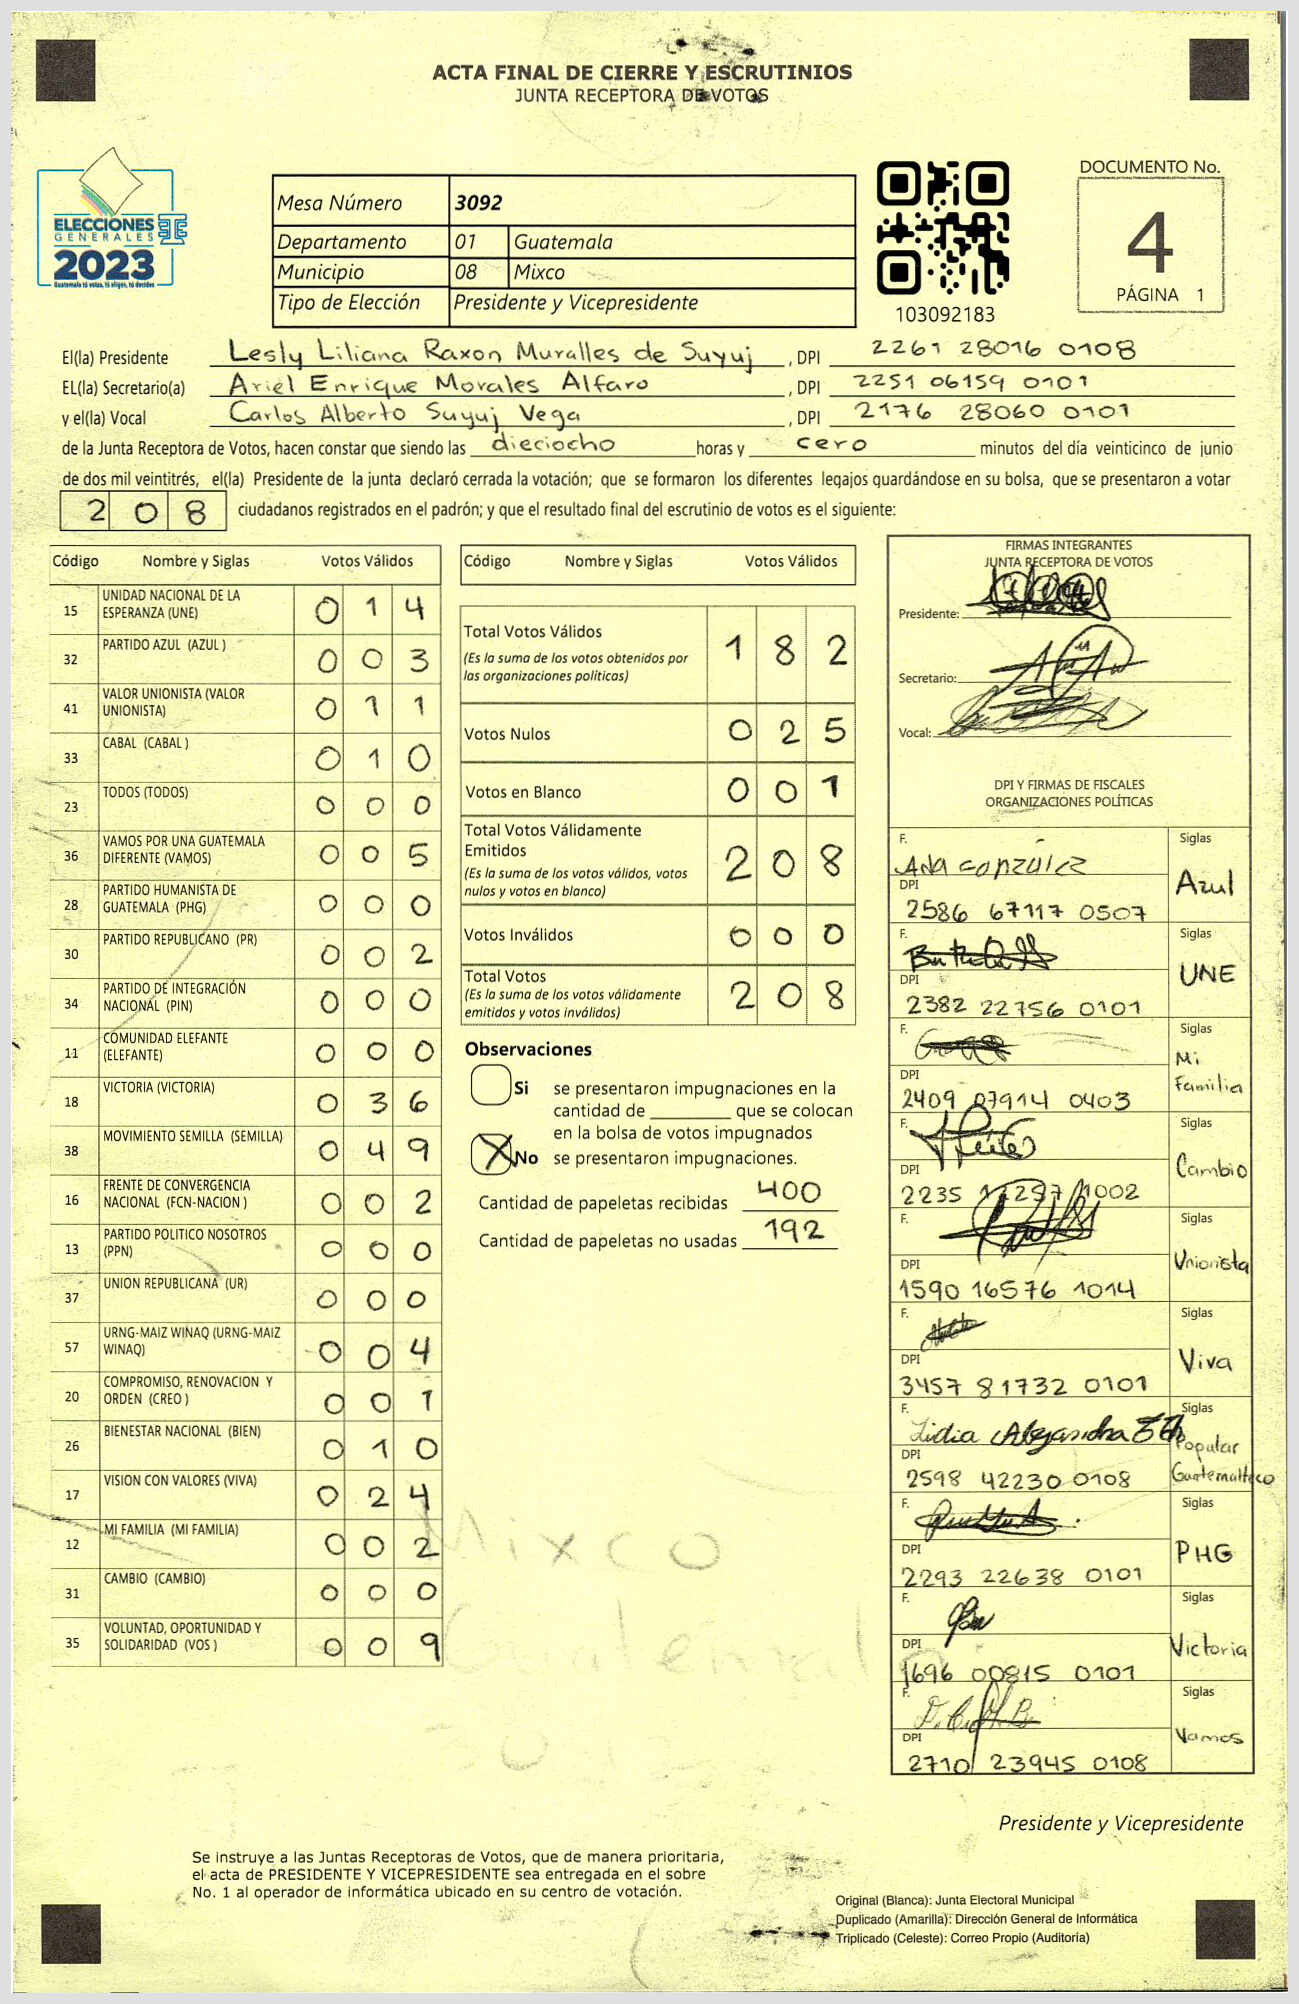 ACTA FINAL DE CIERRE Y ESCRUTINIOS
JUNTA RECEPTORA DE VOTOS
ELECCIONES
GENERALES
2023
Guatemala tú votas, tú eliges, tú decides
Mesa Número 3092
Departamento 01 Guatemala
Municipio 08 Mixco
Tipo de Elección Presidente y Vicepresidente
103092183
DOCUMENTO No.
4
PÁGINA 1
El(la) Presidente Lesly Liliana Raxon Muralles de Suyuj, DPI 2261 28016 0108
EL(la) Secretario(a) Ariel Enrique Morales Alfaro, DPI 2251 06159 0101
y el(la) Vocal Carlos Alberto Suyuj Vega, DPI 2176 28060 0101
de la Junta Receptora de Votos, hacen constar que siendo las dieciocho horas y cero minutos del día veinticinco de junio
de dos mil veintitrés, el(la) Presidente de la junta declaró cerrada la votación; que se formaron los diferentes legajos guardándose en su bolsa, que se presentaron a votar
208 ciudadanos registrados en el padrón; y que el resultado final del escrutinio de votos es el siguiente:
Código Nombre y Siglas Votos Válidos
15 UNIDAD NACIONAL DE LA ESPERANZA (UNE) 014
32 PARTIDO AZUL (AZUL ) 003
41 VALOR UNIONISTA (VALOR UNIONISTA) 011
33 CABAL (CABAL ) 010
23 TODOS (TODOS) 000
36 VAMOS POR UNA GUATEMALA DIFERENTE (VAMOS) 005
28 PARTIDO HUMANISTA DE GUATEMALA (PHG) 000
30 PARTIDO REPUBLICANO (PR) 002
34 PARTIDO DE INTEGRACIÓN NACIONAL (PIN) 000
11 COMUNIDAD ELEFANTE (ELEFANTE) 000
18 VICTORIA (VICTORIA) 036
38 MOVIMIENTO SEMILLA (SEMILLA) 049
16 FRENTE DE CONVERGENCIA NACIONAL (FCN-NACION ) 002
13 PARTIDO POLITICO NOSOTROS (PPN) 000
37 UNION REPUBLICANA (UR) 000
57 URNG-MAIZ WINAQ (URNG-MAIZ WINAQ) 004
20 COMPROMISO, RENOVACION Y ORDEN (CREO ) 001
26 BIENESTAR NACIONAL (BIEN) 010
17 VISION CON VALORES (VIVA) 024
12 MI FAMILIA (MI FAMILIA) 002
31 CAMBIO (CAMBIO) 000
35 VOLUNTAD, OPORTUNIDAD Y SOLIDARIDAD (VOS ) 009
Código Nombre y Siglas Votos Válidos
Total Votos Válidos 182
(Es la suma de los votos obtenidos por
las organizaciones politicas)
Votos Nulos 025
Votos en Blanco 001
Total Votos Válidamente
Emitidos 208
(Es la suma de los votos válidos, votos
nulos y votos en blanco)
Votos Inválidos 000
Total Votos 208
(Es la suma de los votos válidamente
emitidos y votos inválidos)
Observaciones
Si se presentaron impugnaciones en la
cantidad de ________ que se colocan
en la bolsa de votos impugnados
X No se presentaron impugnaciones.
Cantidad de papeletas recibidas 400
Cantidad de papeletas no usadas 192
Mixco
FIRMAS INTEGRANTES
JUNTA RECEPTORA DE VOTOS
Presidente:
Secretario:
Vocal:
DPI Y FIRMAS DE FISCALES
ORGANIZACIONES POLÍTICAS
F. Ana González Siglas
DPI 2586 67117 0507 Azul
F. Siglas
DPI 2382 22756 0101 UNE
F. Siglas
DPI 2409 07914 0403 Mi Familia
F. Siglas
DPI 2235 1002 Cambio
F. Siglas
DPI 1590 16576 1014 Unionista
F. Siglas
DPI 3457 81732 0101 Viva
F. Lidia Alejandra Siglas
DPI 2598 42230 0108 Popular Guatemalteco
F. Siglas
DPI 2293 22638 0101 PHG
F. Siglas
DPI 1696 00815 0101 Victoria
F. Siglas
DPI 2710 23945 0108 Vamos
Presidente y Vicepresidente
Se instruye a las Juntas Receptoras de Votos, que de manera prioritaria,
el acta de PRESIDENTE Y VICEPRESIDENTE sea entregada en el sobre
No. 1 al operador de informática ubicado en su centro de votación.
Original (Blanca): Junta Electoral Municipal
Duplicado (Amarilla): Dirección General de Informática
Triplicado (Celeste): Correo Propio (Auditoría)